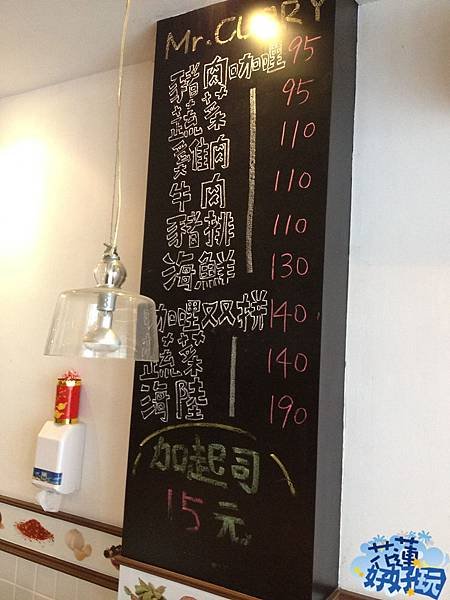 Mr. CURRY
豬肉咖哩 95
蔬菜 95
雞肉 110
牛肉 110
豬排 110
海鮮 130
咖哩双拼 140
蔬菜 140
海陸 190
加起司
15元
花蓮
好好玩